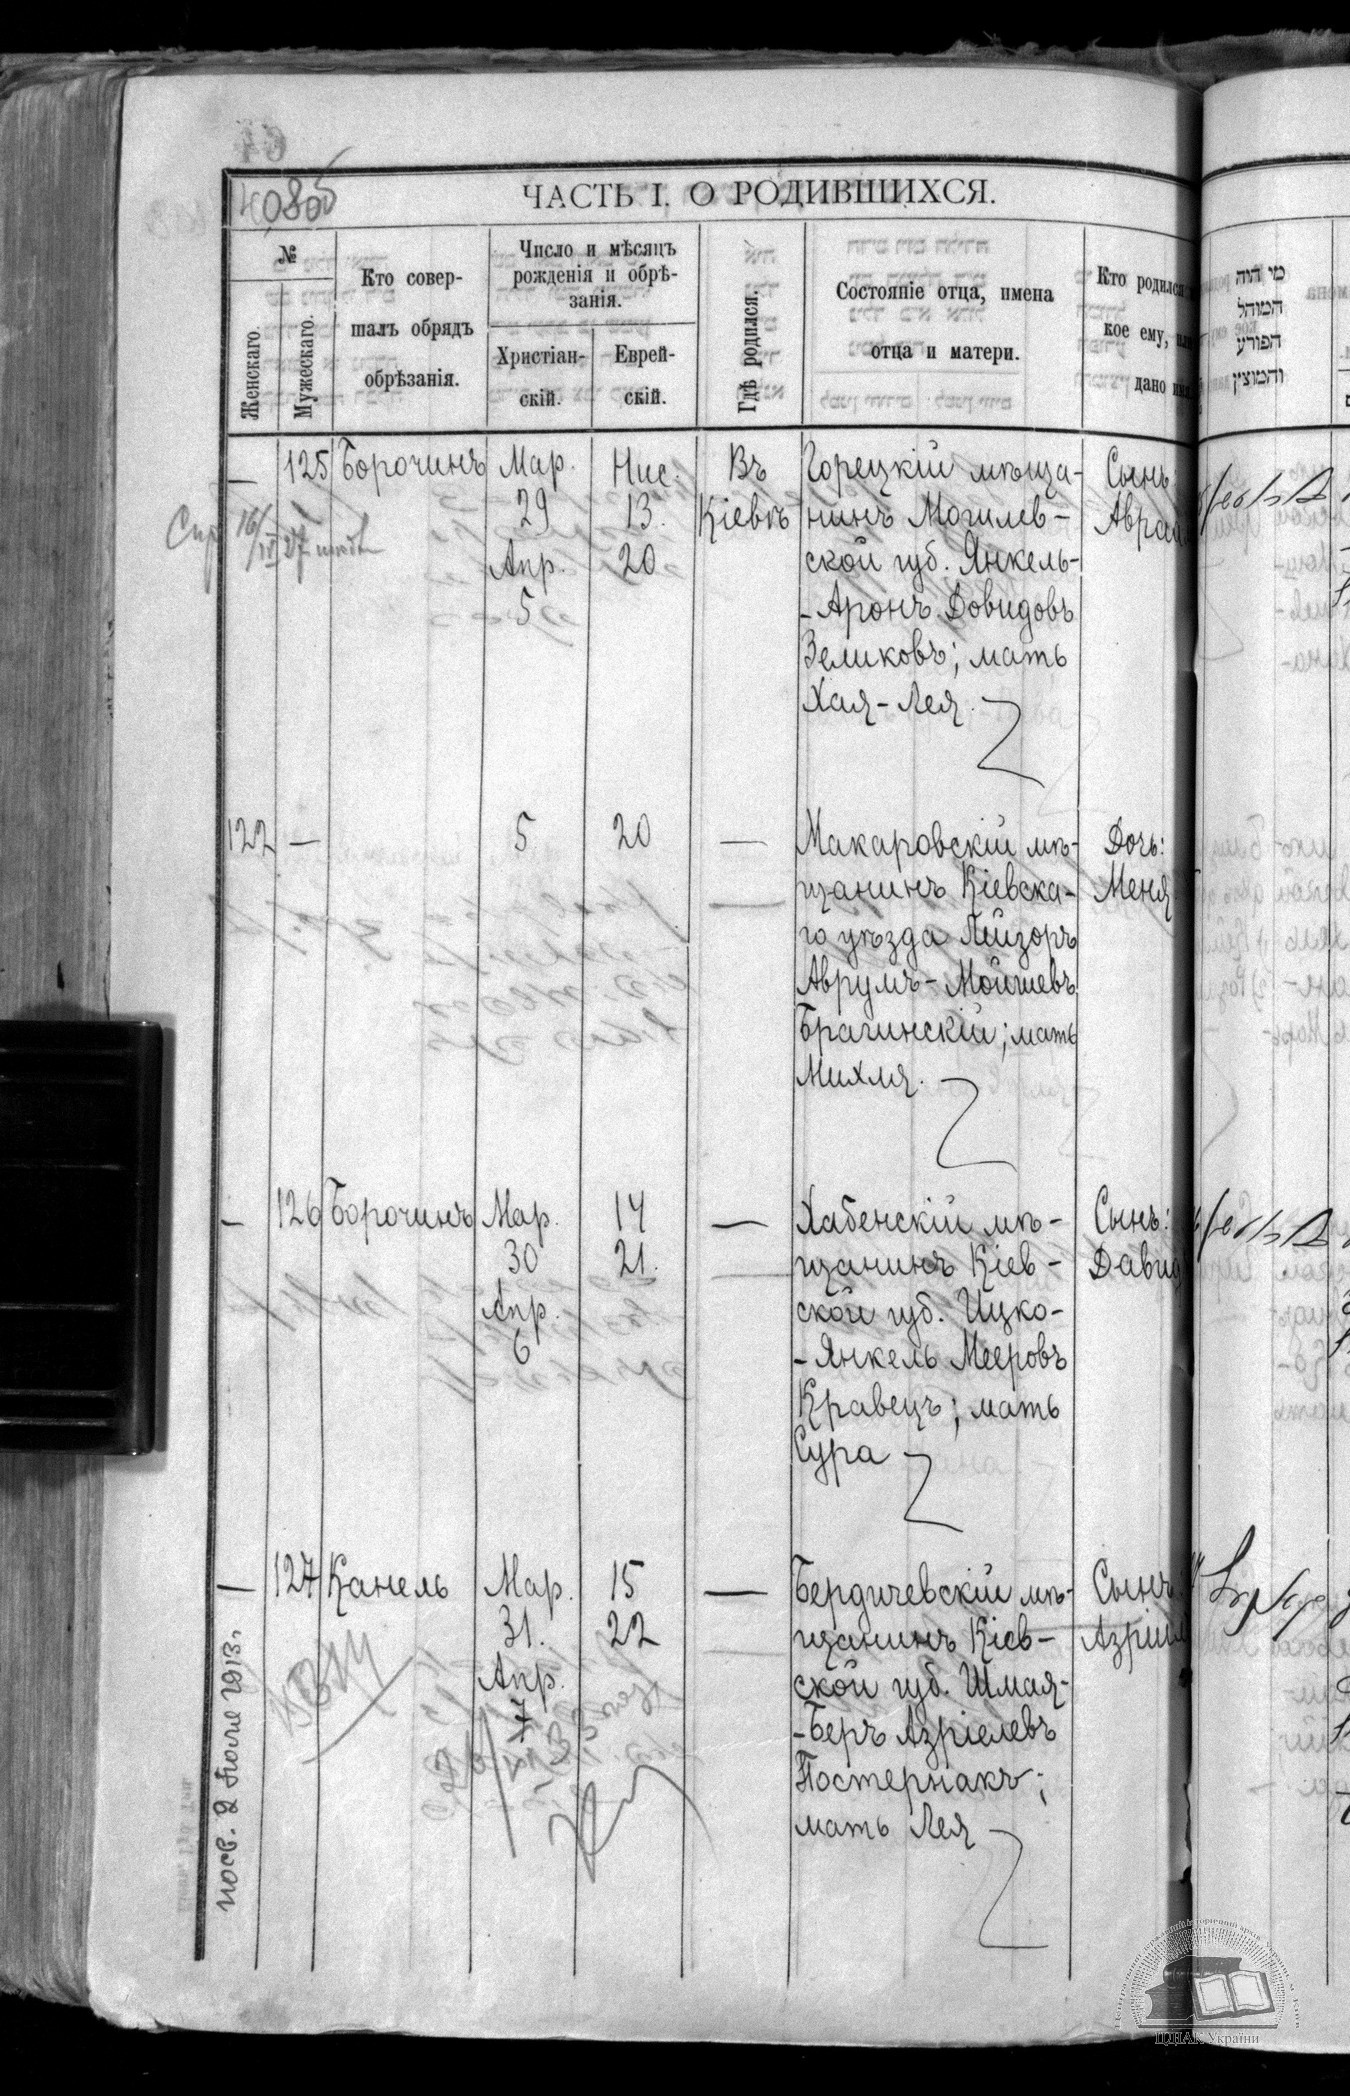 40805
ЧАСТЬ I. О РОДИВШИХСЯ.
№
Женскаго.
Мужескаго.
Кто совер-
шалъ обрядъ
обрѣзанія.
Число и мѣсяцъ
рожденія и обрѣ-
занія.
Христіан-
скій.
Еврей-
скій.
Гдѣ родился.
Состояніе отца, имена
отца и матери.
Кто родился
кое ему, или
дано имя
מי היה
המוהל
הפורע
והמוצץ
— 125 Борочинъ Мар. 29 Апр. 5 Нис. 13. 20 Въ Кіевѣ
Горецкій мѣща-
нинъ Могилев-
ской губ. Янкель-
-Аронъ Довидовъ
Зеликовъ; мать
Хая-Лея.
Сынъ:
Авраам
122 — 5 20 —
Макаровскій мѣ-
щанинъ Кіевска-
го уѣзда Лейзоръ
Аврумъ-Мойшевъ
Брагинскій; мать
Михля.
Дочь:
Меня
— 126 Борочинъ Мар. 30 Апр. 6 14 21. —
Хабенскій мѣ-
щанинъ Кіев-
ской губ. Ицко-
-Янкель Мееровъ
Кравецъ; мать
Сура
Сынъ:
Давид
— 127 Канель Мар. 31. Апр. 7 15 22 —
Бердичевскій мѣ-
щанинъ Кіев-
ской губ. Шмая-
-Беръ Азріелевъ
Постернакъ;
мать Лея
Сынъ
Азріил
2 Іюле 1913г.
ЦДІАК України